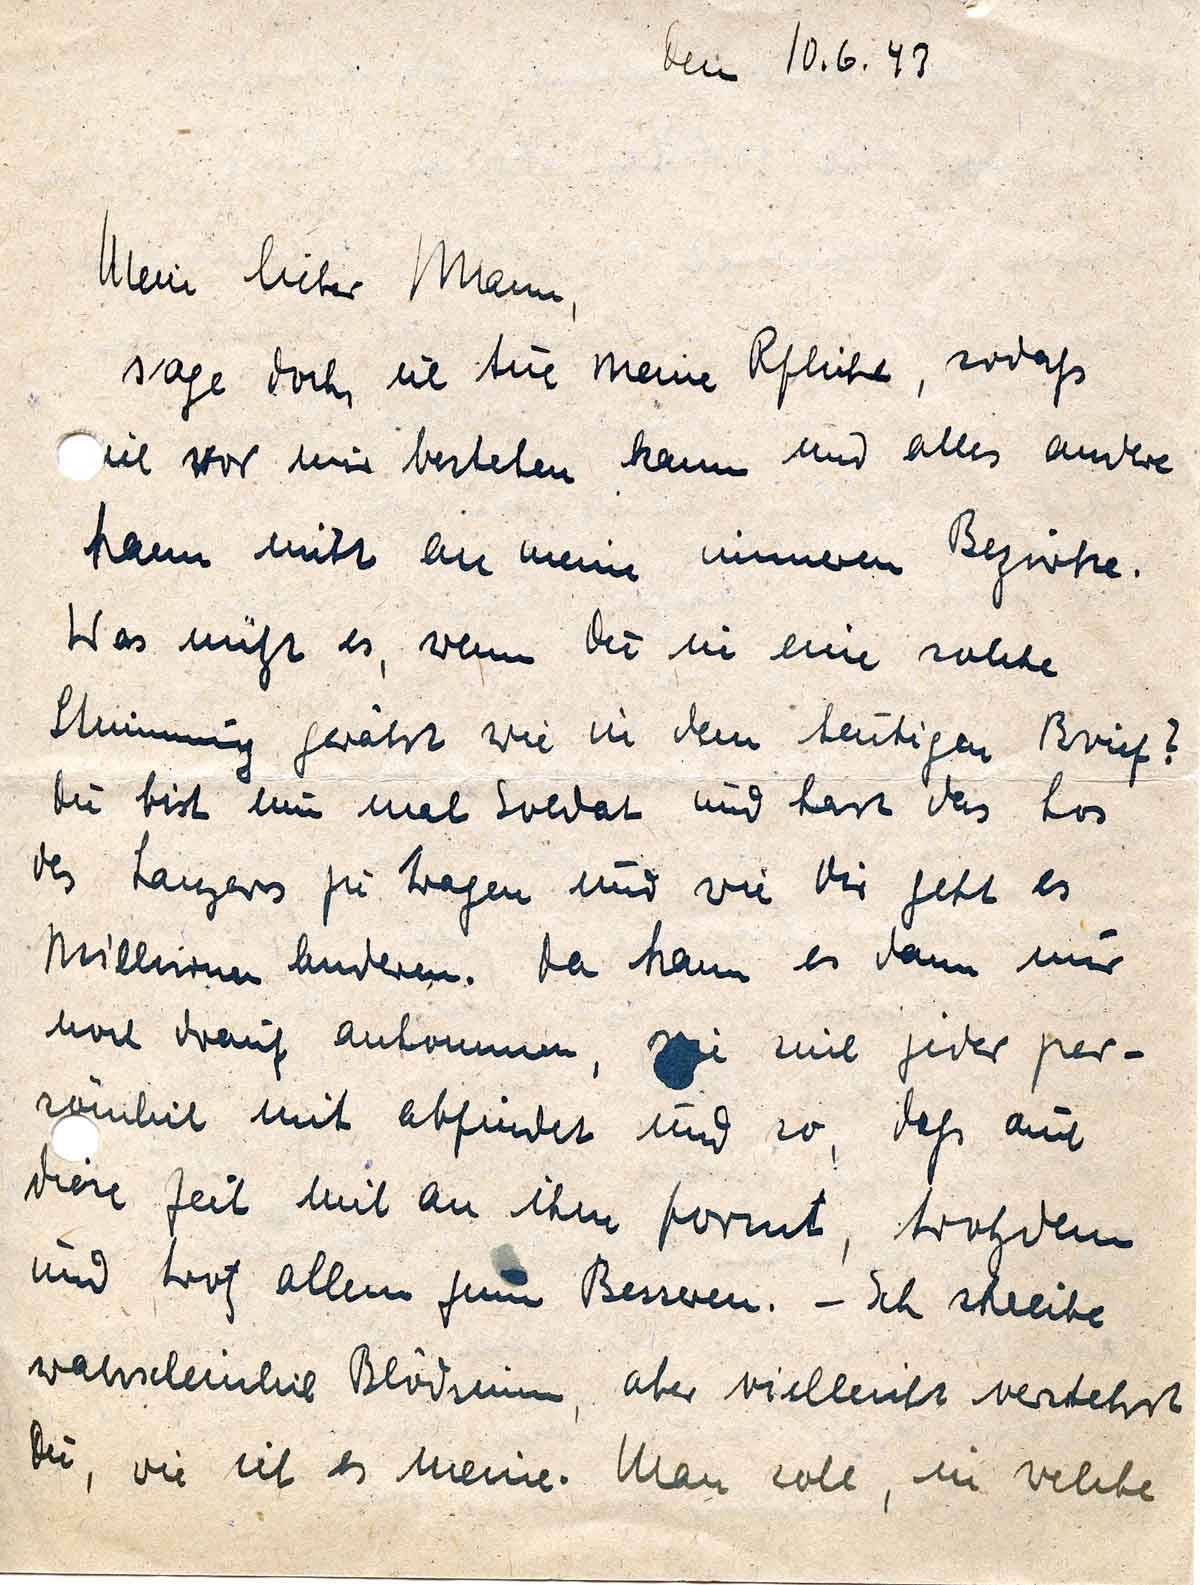 den 10.6.43
Mein lieber Mann,
sage doch, ich tue meine Pflicht, sodaß
ich vor mir bestehen kann und alles andere
kann nicht an meine inneren Bezirke.
Was nützt es, wenn Du in eine solche
Stimmung gerätst wie in dem heutigen Brief?
Du bist nun mal Soldat und hast das Los
des Landsers zu tragen und wie Dir geht es
Millionen Anderen. Da kann es dann nur
noch drauf ankommen, wie sich jeder per-
sönlich mit abfindet und so, daß auch
diese Zeit mit an ihm formt, trotzdem
und trotz allem zum Besseren. – Ich schreibe
wahrscheinlich Blödsinn, aber vielleicht verstehst
Du, wie ich es meine. Man soll, in welche